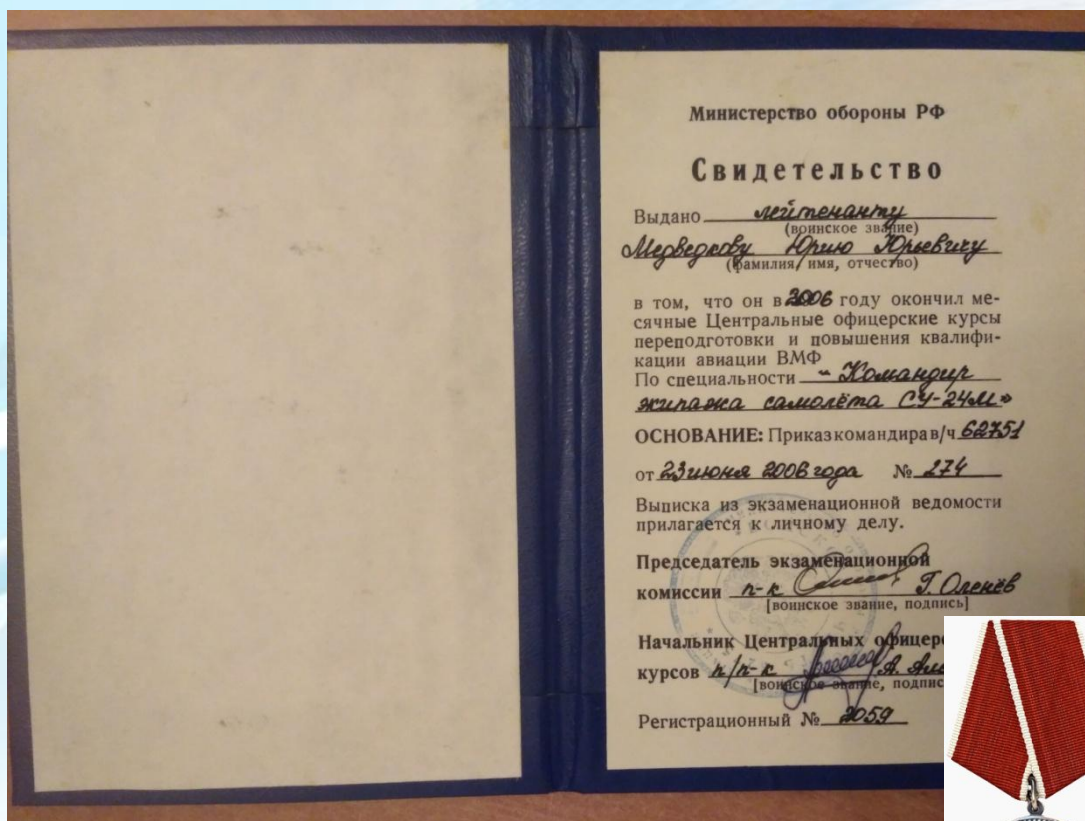 Министерство обороны РФ
Свидетельство
Выдано лейтенанту
(воинское звание)
Медведкову Юрию Юрьевичу
(фамилия, имя, отчество)
в том, что он в 2006 году окончил ме-
сячные Центральные офицерские курсы
переподготовки и повышения квалифи-
кации авиации ВМФ
По специальности "Командир
экипажа самолёта СУ-24М"
ОСНОВАНИЕ: Приказ командира в/ч 62751
от 23 июня 2006 года № 274
Выписка из экзаменационной ведомости
прилагается к личному делу.
Председатель экзаменационной
комиссии п-к Г. Оленёв
[воинское звание, подпись]
Начальник Центральных офицерс
курсов п/п-к А.
[воинское звание, подпис
Регистрационный № 2059